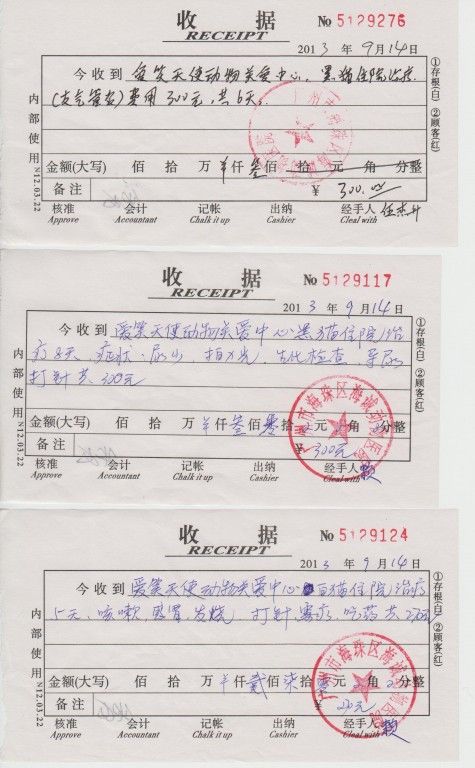 收 据
RECEIPT
No 5129276
2013 年 9 月 14 日
今收到 爱笑天使动物关爱中心，黑猫住院治疗
(支气管炎) 费用 300元，共6天。
金额(大写) 佰 拾 万 仟 叁 佰 拾 元 角 分整
备注
¥ 300.00
核准 会计 记帐 出纳 经手人
Approve Accountant Chalk it up Cashier Cleal with
内部使用
N12.03.22
①存根(白) ②顾客(红)
收 据
RECEIPT
No 5129117
2013 年 9 月 14 日
今收到 爱笑天使动物关爱中心黑猫住院治
疗8天 症状:尿 拍 光 检查 导尿
打针 共300元
金额(大写) 佰 拾 万 仟 叁 佰 零 拾 元 角 分整
备注
300元
核准 会计 记帐 出纳 经手人
Approve Accountant Chalk it up Cashier Cleal with
内部使用
N12.03.22
①存根(白) ②顾客(红)
广州市海珠区海 动物医院
收 据
RECEIPT
No 5129124
2013 年 9 月 14 日
今收到 爱笑天使动物关爱中心 白猫住院治疗
5天，咳嗽，感冒，发烧 打针，雾疗，吃药 共270元
金额(大写) 佰 拾 万 仟 贰 佰 柒 拾 元 角 分整
备注
270元
核准 会计 记帐 出纳 经手人
Approve Accountant Chalk it up Cashier Cleal with
内部使用
N12.03.22
①存根(白) ②顾客(红)
广州市海珠区海 动物医院